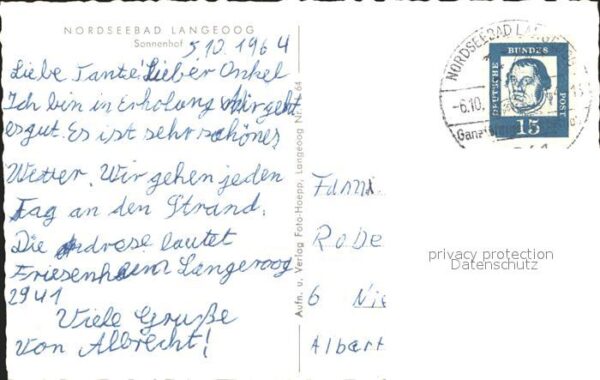 NORDSEEBAD LANGEOOG
Sonnenhof
5.10.1964
Liebe Tante! Lieber Onkel
Ich bin in Erholung Mir geht
es gut. Es ist sehr schönes
Wetter. Wir gehen jeden
Tag an den Strand.
Die Adrese lautet
Friesenheim Langeroog
2941
Viele Gruße
Von Albrecht!
Aufn. u. Verlag Foto-Hoepp, Langeoog Nr. 64
NORDSEEBAD LANGEOOG
-6.10.
DEUTSCHE
BUNDES
POST
15
Fanni
Rode
6 Nie
Albert
privacy protection
Datenschutz